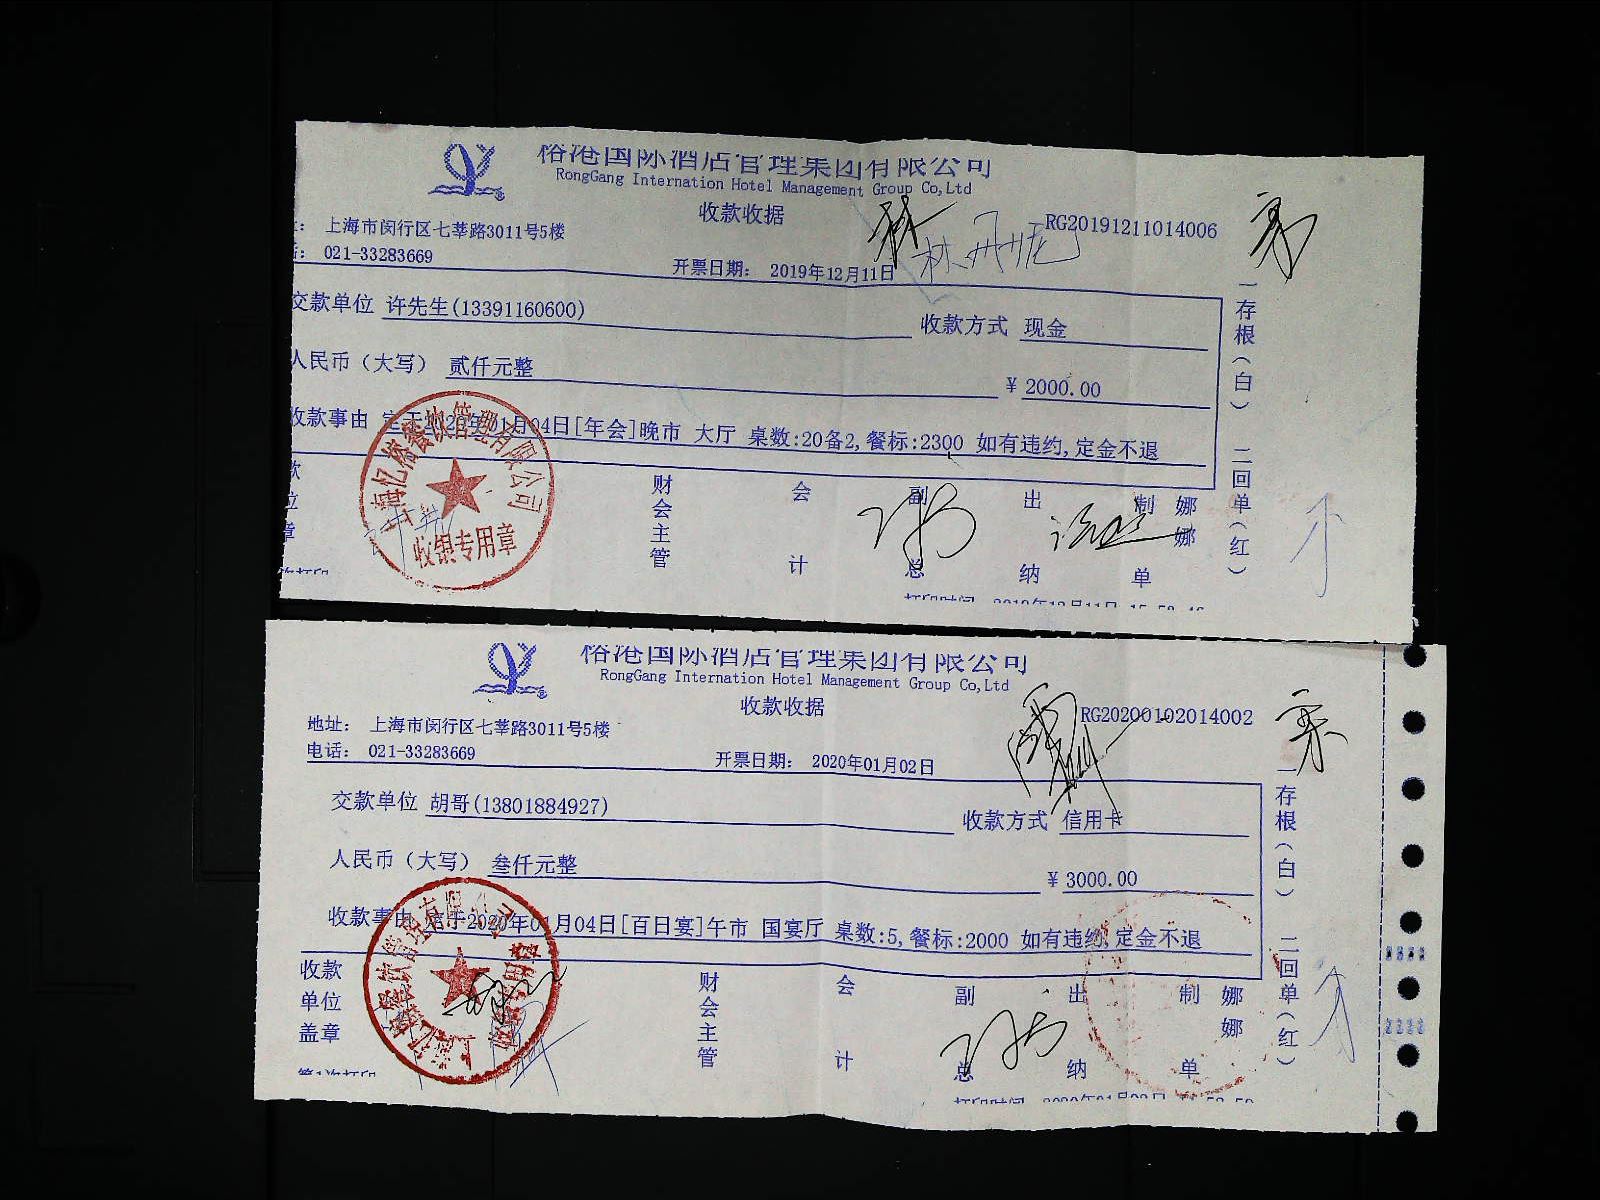 榕港国际酒店管理集团有限公司
RongGang Internation Hotel Management Group Co,Ltd
收款收据
RG20191211014006
上海市闵行区七莘路3011号5楼
021-33283669
开票日期： 2019年12月11日
林丹妮
交款单位 许先生(13391160600)
收款方式 现金
人民币（大写） 贰仟元整
¥ 2000.00
收款事由 定于2020年01月04日[年会]晚市 大厅 桌数:20备2,餐标:2300 如有违约,定金不退
一存根(白) 二回单(红)
款位章
财会主管
会计
副总
出纳
制单
娜娜
收银专用章
打印时间 2019年12月11日
榕港国际酒店管理集团有限公司
RongGang Internation Hotel Management Group Co,Ltd
收款收据
RG20200102014002
地址： 上海市闵行区七莘路3011号5楼
电话： 021-33283669
开票日期： 2020年01月02日
交款单位 胡哥(13801884927)
收款方式 信用卡
人民币（大写） 叁仟元整
¥ 3000.00
收款事由 定于2020年01月04日[百日宴]午市 国宴厅 桌数:5,餐标:2000 如有违约,定金不退
一存根(白) 二回单(红)
收款单位盖章
财会主管
会计
副总
出纳
制单
娜娜
第1次打印
打印时间 2020年01月02日